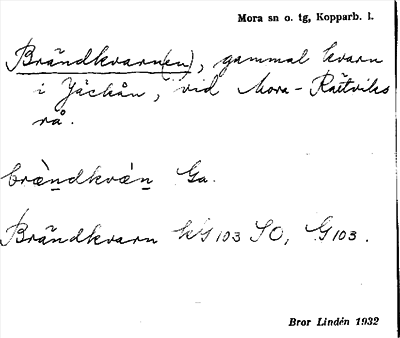 Mora sn o. tg, Kopparb. l.
Brändkvarn(en), gammal kvarn
i Jäckån, vid Mora-Rättviks
rå.
brändkvän Ga.
Brändkvarn kG103 SO, G103.
Bror Lindén 1932